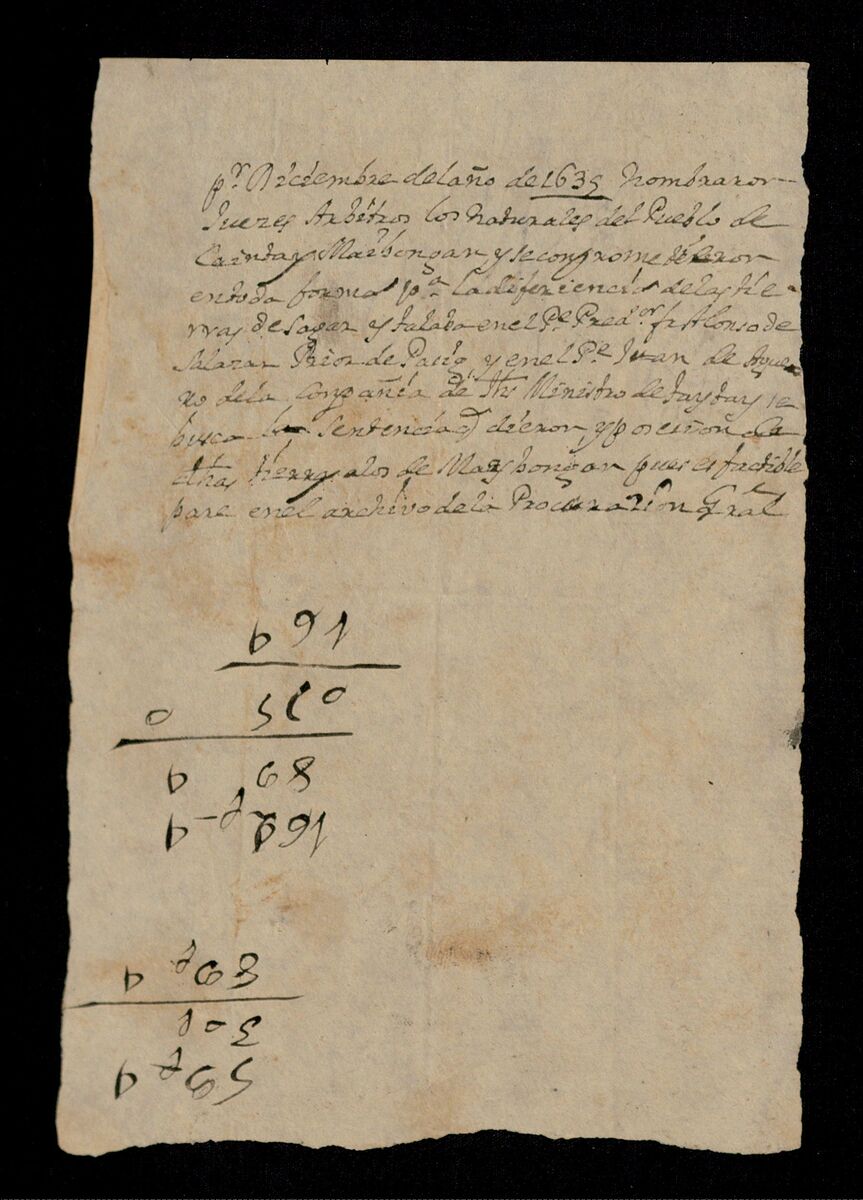 pr. Diciembre del año de 1635 Nombraron
Juezes Arbitros los Naturales del Pueblo de
Cainta y Maibongan y se comprometieron
en toda forma pa. la diferiencia de las tie-
rras de Sapan y talaba en el Pe. Predor. fr. Alonso de
Salazar Prior de Pasig, y en el Pe. Juan de Ague-
ro de la Conpañia de Jhs Ministro de taytay se
busca la Sentencia q dieron, y posesion de
dhas tierras a los de Maybongan pues es factible
pare en el archivo de la Procurazion Gral
169
075 0
89 4
169 4
89 4
30
59 4